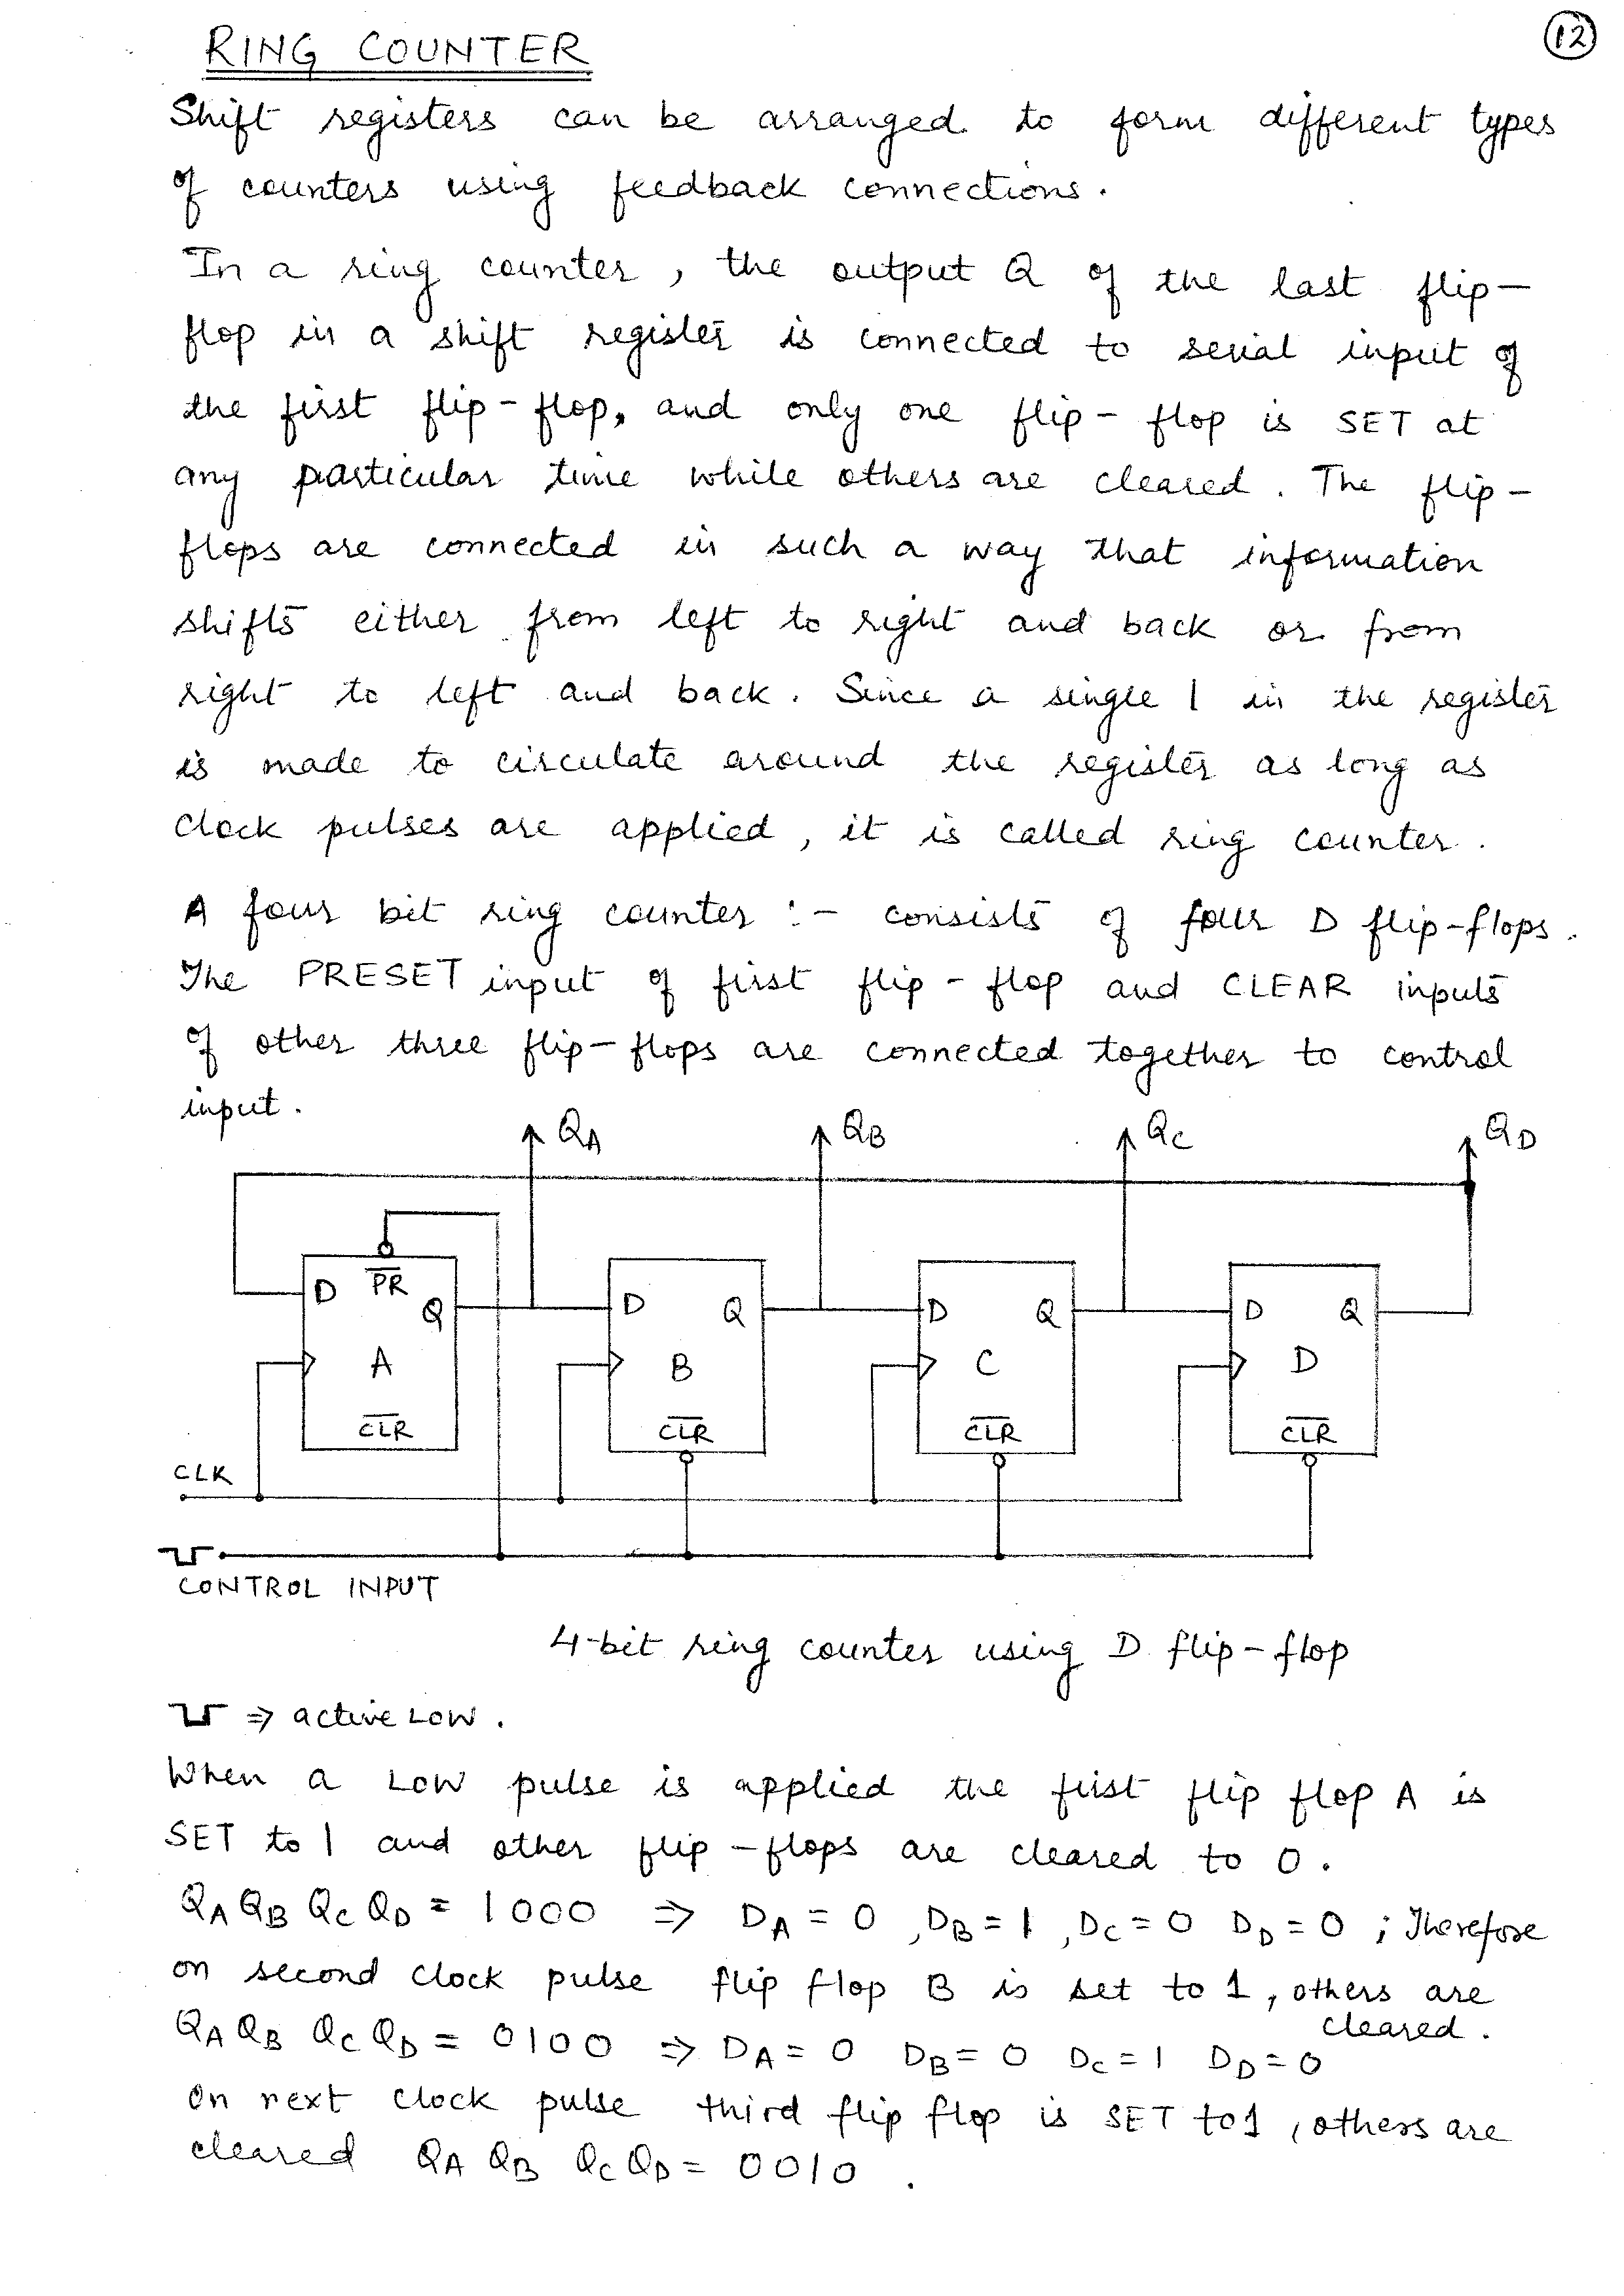 RING COUNTER
12
Shift registers can be arranged to form different types
of counters using feedback connections.
In a ring counter, the output Q of the last flip-
flop in a shift register is connected to serial input of
the first flip-flop, and only one flip-flop is SET at
any particular time while others are cleared. The flip-
flops are connected in such a way that information
shifts either from left to right and back or from
right to left and back. Since a single 1 in the register
is made to circulate around the register as long as
clock pulses are applied, it is called ring counter.
A four bit ring counter :- consists of four D flip-flops.
The PRESET input of first flip-flop and CLEAR inputs
of other three flip-flops are connected together to control
input.
QA QB QC QD
D PR Q D Q D Q D Q
A B C D
CLR CLR CLR CLR
CLK
CONTROL INPUT
4-bit ring counter using D flip-flop
⇒ active LOW.
When a LOW pulse is applied the first flip flop A is
SET to 1 and other flip-flops are cleared to 0.
QA QB QC QD = 1000 ⇒ DA = 0, DB = 1, DC = 0 DD = 0 ; Therefore
on second clock pulse flip flop B is set to 1, others are
cleared.
QA QB QC QD = 0100 ⇒ DA = 0 DB = 0 DC = 1 DD = 0
On next clock pulse third flip flop is SET to 1, others are
cleared QA QB QC QD = 0010.